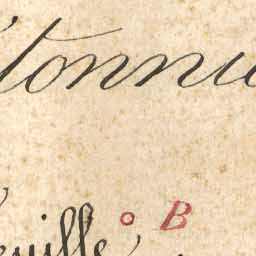 tonni
euille
B